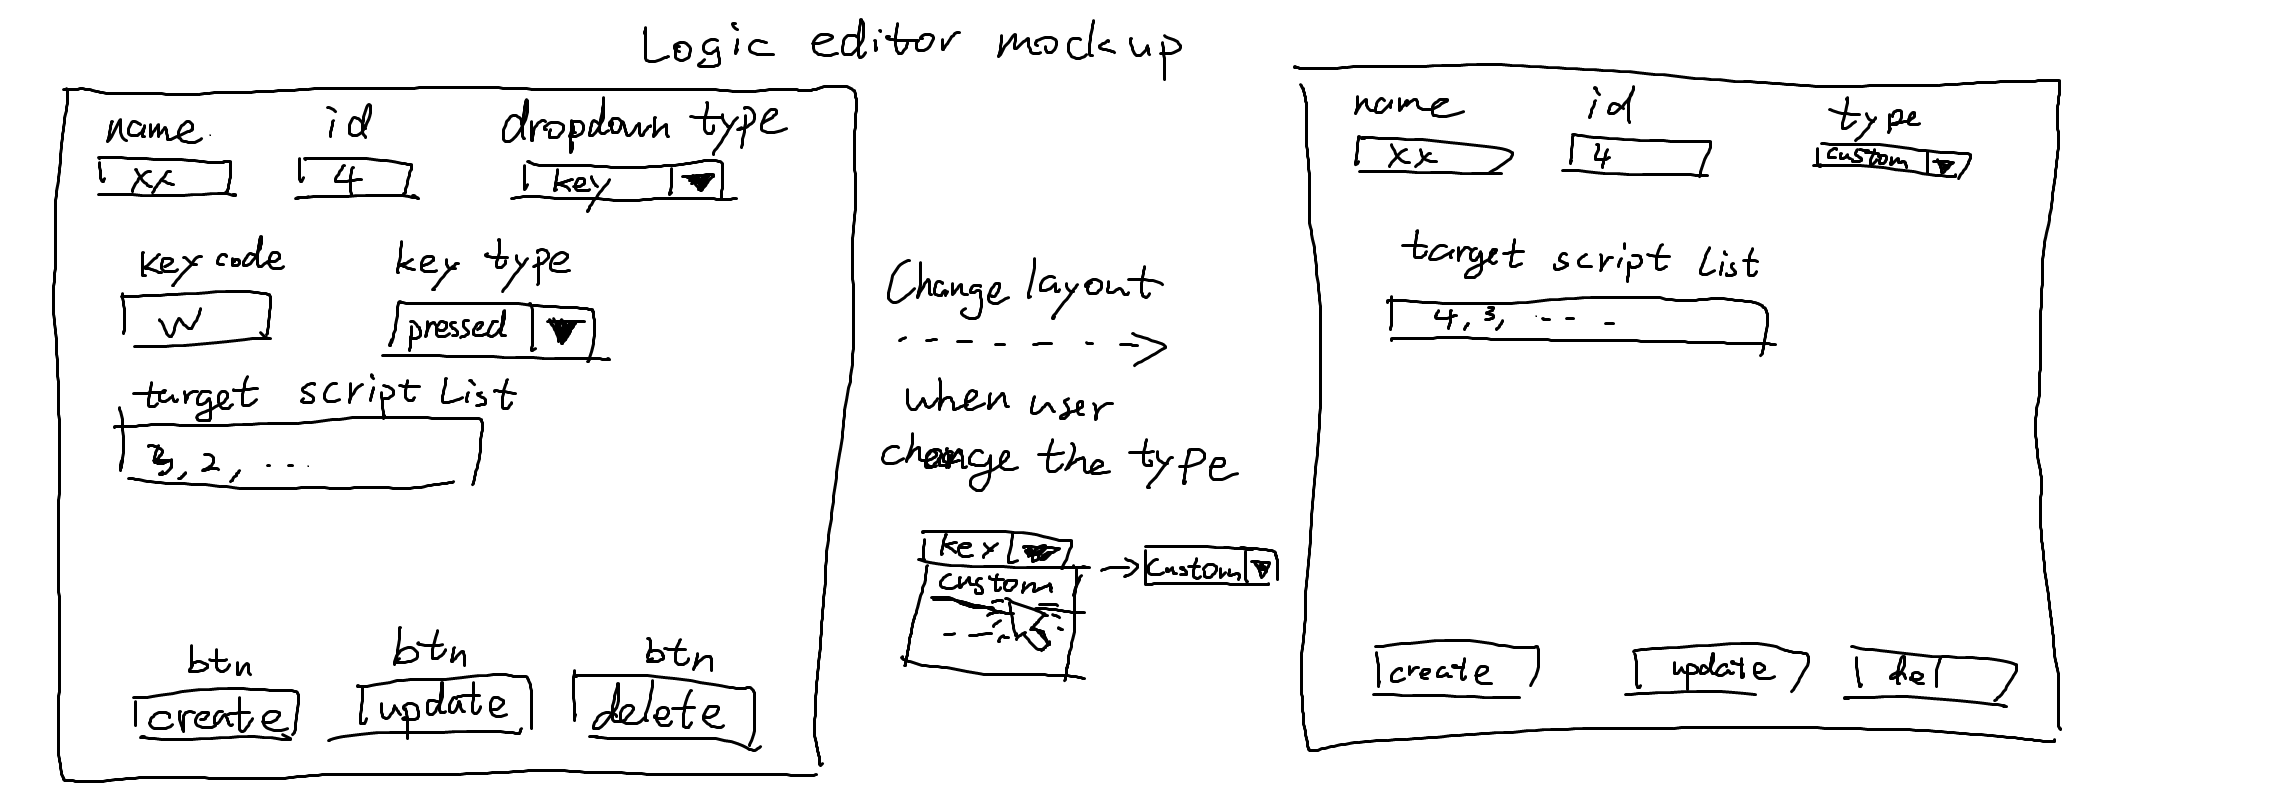 Logic editor mockup
name id dropdown type
xx 4 key
key code key type
w pressed
target script List
3, 2, ...
btn btn btn
create update delete
Change layout
when user
change the type
key
custom
custom
name id type
xx 4 custom
target script List
4, 3, ---
create update del